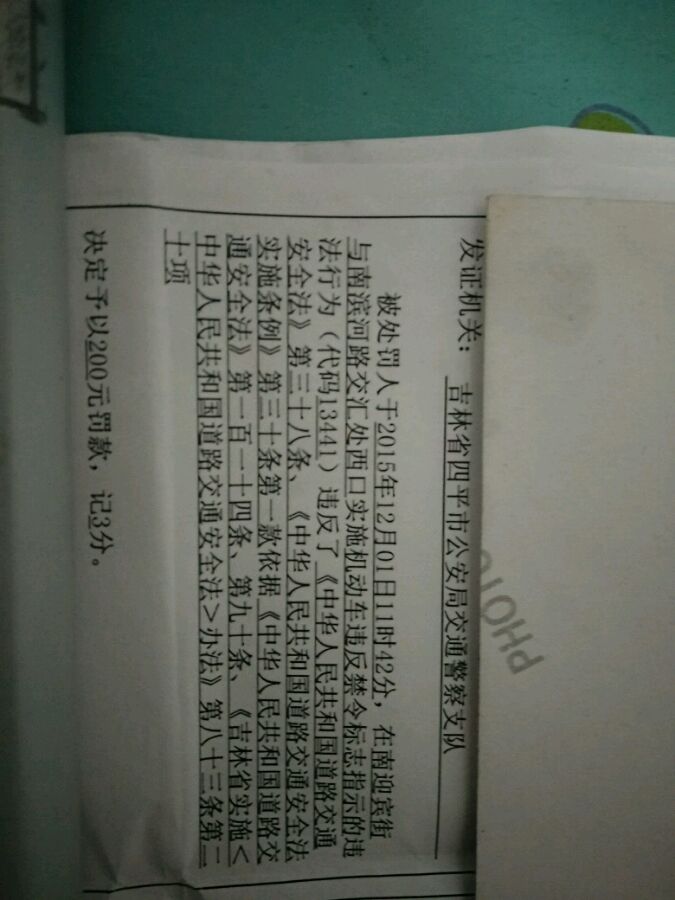 发证机关： 吉林省四平市公安局交通警察支队
被处罚人于2015年12月01日11时42分，在南迎宾街
与南滨河路交汇处西口实施机动车违反禁令标志指示的违
法行为（代码13441）违反了《中华人民共和国道路交通
安全法》第三十八条、《中华人民共和国道路交通安全法
实施条例》第三十条第一款依据《中华人民共和国道路交
通安全法》第一百一十四条、第九十条、《吉林省实施<
中华人民共和国道路交通安全法>办法》第八十三条第二
十项
决定予以200元罚款，记3分。
PHOTO